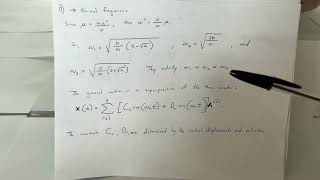 → Normal frequencies
Since μ = mω²/k, then ω² = k/m μ.
So, ω₁ = √(k/m (2-√2)), ω₂ = √(2k/m), and
ω₃ = √(k/m (2+√2)) They satisfy ω₁ < ω₂ < ω₃
The general motion is a superposition of the three modes:
x(t) = Σ [Cᵣ cos(ωᵣt) + Dᵣ sin(ωᵣt)]
The constants Cᵣ, Dᵣ are determined by the initial displacements and velocities